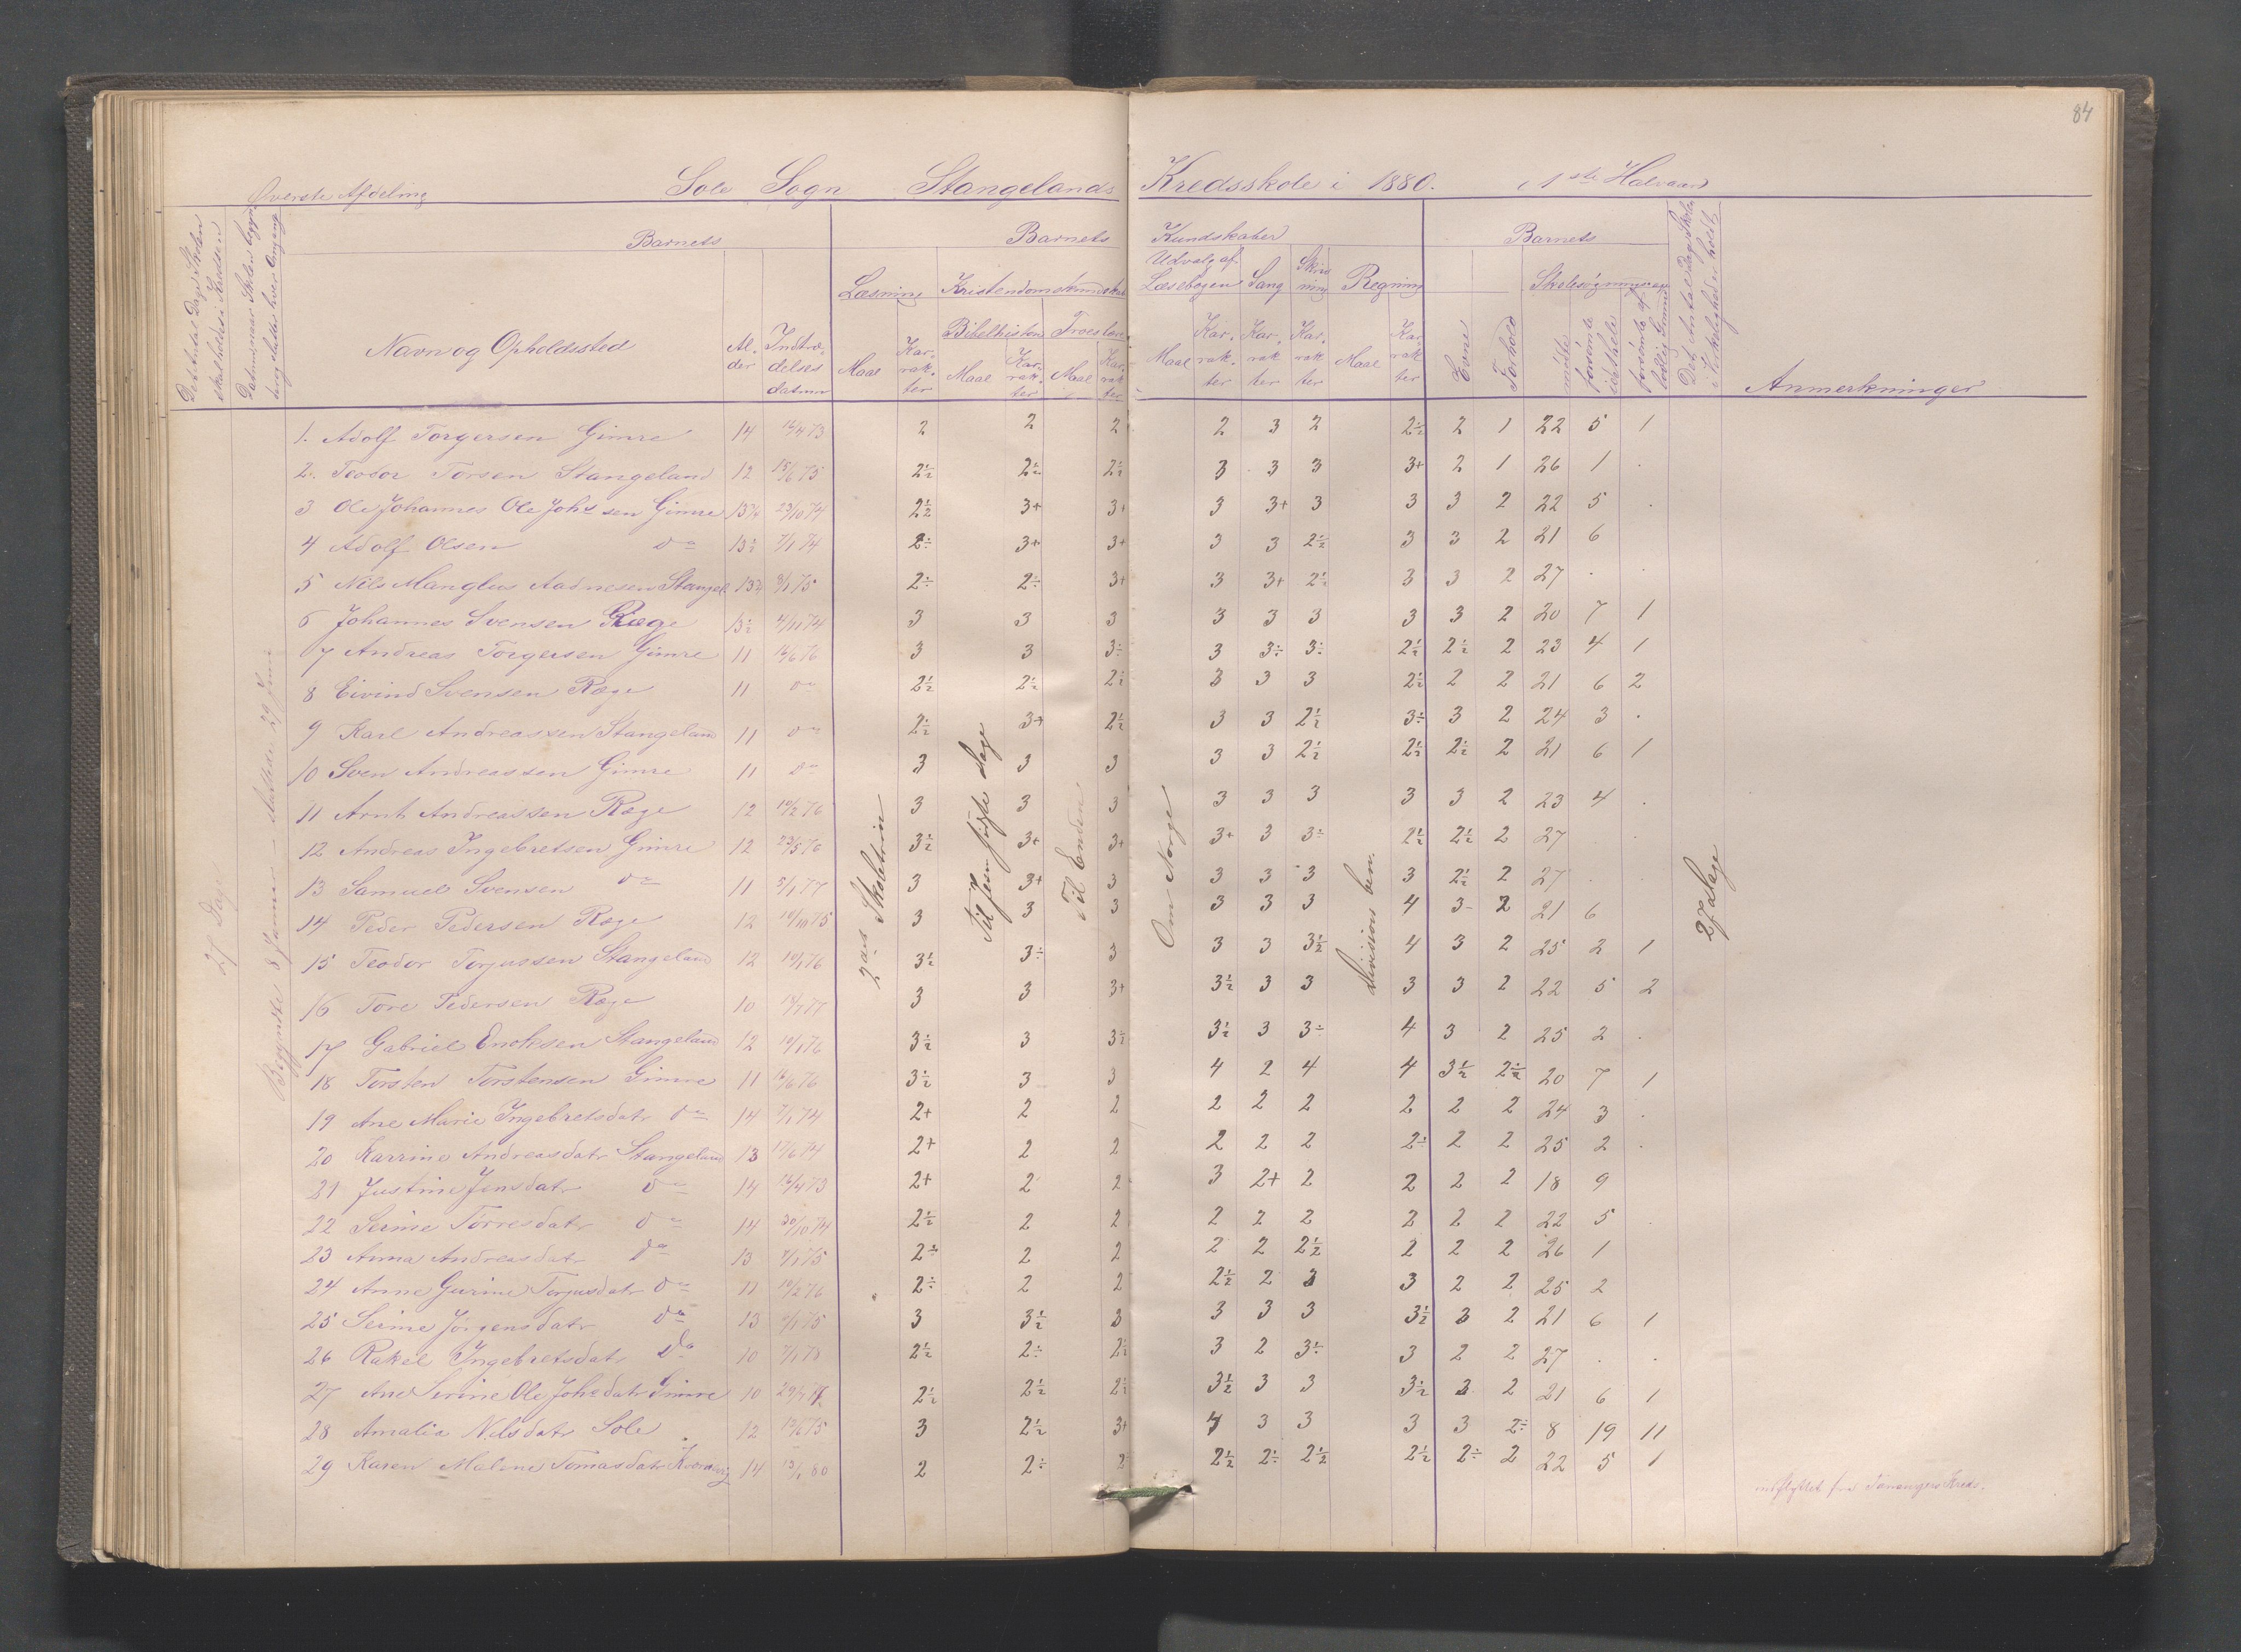 84
Øverste Afdeling Sole Sogn Stangelands Kredsskole i 1880. 1ste Halvaar
Det Antal Dage Skolen skal holdes i Kredsen
Barnets Barnets Kundskaber Barnets
Læsning Kristendomskundskab Udvalg af Læsebogen Sang Skrivning Regning Skolesøgning
Bibelhistorie Troeslære
Navn og Opholdssted Alder Indtrædelsesdatum Maal Karakter Maal Karakter Maal Karakter Maal Karakter Karakter Karakter Maal Karakter Evne Forhold mødte forsømte idethele forsømte af lovlig Grund Det Antal Dage Skolen i Virkeligheden holdt Anmerkninger
27 Dage
Begyndte 8 Januar - sluttede 29 Juni
2det Skoletrin
Til Jesu sidste Dage
Til Enden
Om Norge
Division ben.
27 Dage
1. Adolf Torgersen Gimre 14 12/4 73 2 2 2 2 3 2 2÷ 2 1 22 5 1
2. Teodor Torsen Stangeland 12 15/6 75 2½ 2½ 2½ 3 3 3 3+ 2 1 26 1 .
3 Ole Johannes Ole Johs sen Gimre 13¼ 23/10 74 2½ 3+ 3+ 3 3+ 3 3 3 2 22 5 .
4 Adolf Olsen do 13½ 7/1 74 2÷ 3+ 3+ 3 3 2½ 3 3 2 21 6
5 Nils Manglus Aadnesen Stangel 13¼ 8/1 75 2÷ 2÷ 3+ 3 3+ 2½ 3 3 2 27 . .
6 Johannes Svensen Ræge 13½ 4/11 74 3 3 3 3 3 3 3 3 2 20 7 1
7 Andreas Torgersen Gimre 11 12/6 76 3 3 3÷ 3 3÷ 3÷ 2½ 2½ 2 23 4 1
8 Eivind Svensen Ræge 11 do 2½ 2½ 2½ 3 3 3 2½ 2 2 21 6 2
9 Karl Andreassen Stangeland 11 do 2½ 3+ 2½ 3 3 2½ 3÷ 3 2 24 3 .
10 Sven Andreassen Gimre 11 do 3 3 3 3 3 2½ 2½ 2½ 2 21 6 1
11 Arnt Andreassen Ræge 12 10/2 76 3 3 3 3 3 3 3 3 2 23 4 .
12 Andreas Ingebretsen Gimre 12 23/5 76 3½ 3+ 3+ 3+ 3 3÷ 2½ 2½ 2 27 .
13 Samuel Svensen do 11 8/1 77 3 3+ 3 3 3 3 3 2½ 2 27 . .
14 Peder Pedersen Ræge 12 10/10 75 3 3 3 3 3 3 4 3 2 21 6
15 Teodor Torjussen Stangeland 12 10/1 76 3½ 3÷ 3 3 3 3½ 4 3 2 25 2 1
16 Tore Pedersen Ræge 10 13/1 77 3 3 3+ 3½ 3 3 3 3 2 22 5 2
17 Gabriel Ericksen Stangeland 12 10/1 76 3½ 3 3½ 3½ 3 3÷ 4 3 2 25 2 .
18 Torsten Torstensen Gimre 11 12/6 76 3½ 3 3 4 2 4 4 3½ 2½ 20 7 1
19 Ane Marie Ingebretsdatr do 14 7/1 74 2+ 2 2 2 2 2 2 2 2 24 3 .
20 Karrine Andreasdatr Stangeland 13 17/6 74 2+ 2 2 2 2 2 2÷ 2 2 25 2 .
21 Justine Jensdatr do 14 12/4 73 2+ 2 2 3 2+ 2 2 2 2 18 9
22 Serine Torresdatr do 14 30/10 74 2½ 2 2 2 2 2 2 2 2 22 5 .
23 Anna Andreasdatr do 13 7/1 75 2÷ 2 2 2 2 2½ 2 2 2 26 1
24 Anne Gurine Torjusdatr do 11 10/2 76 2÷ 2 2 2½ 2 3 3 2 2 25 2
25 Serine Jørgensdatr do 13 8/1 75 3 3½ 3 3 3 3 3½ 3 2 21 6 1
26 Rakel Ingebretsdatr do 10 7/1 78 2½ 2÷ 2½ 3 2 3÷ 3 2 2 27 . .
27 Ane Serine Ole Johs datr Gimre 10 29/1 77 2½ 2½ 2½ 3½ 3 3 3½ 3 2 21 6 1
28 Amalia Nilsdatr Sole 12 12/6 75 3 2½ 3+ 4 3 3 3 3 2÷ 8 19 11
29 Karen Malene Tomasdatr 14 13/1 80 2 2÷ 2 2½ 2÷ 2½ 2½ 2÷ 2 22 5 1 indflyttet fra Tanangers Kreds.